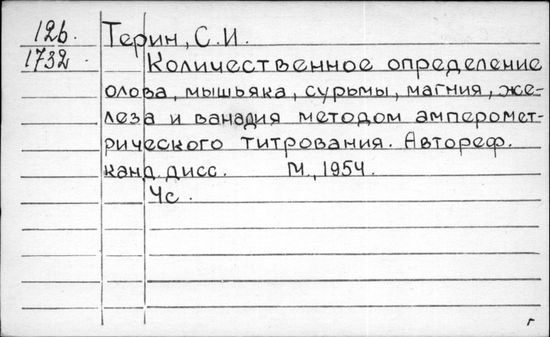 12б. Терин, С.И.
1732.
Количественное определение
олова, мышьяка, сурьмы, магния, же-
леза и ванадия методом амперомет-
рического титрования. Автореф.
канд. дисс. М., 1954.
Чс.
г